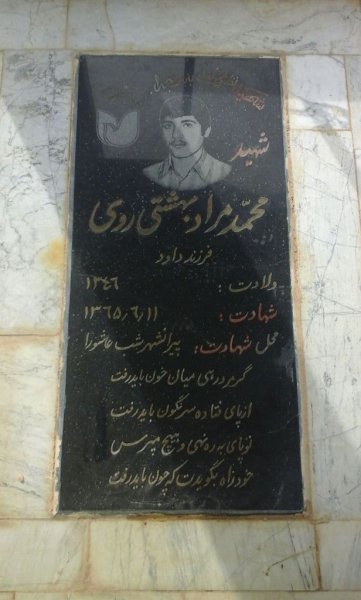 شهید
محمّد مراد بهشتی روی
فرزند داود
ولادت : ۱۳۴۶
شهادت : ۱۳۶۵٫۶٫۱۱
محل شهادت : پیرانشهر شب عاشورا
گر مرد رهی میان خون باید رفت
از پای فتاده سرنگون باید رفت
تو پای به ره نه و هیچ مپرس
خود راه بگویدت که چون باید رفت